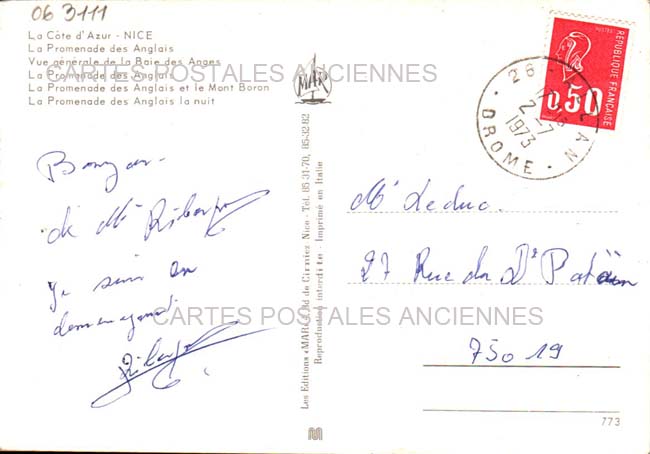 06 3111
La Côte d'Azur - NICE
La Promenade des Anglais
Vue générale de la Baie des Anges
La Promenade des Anglais
La Promenade des Anglais et le Mont Boron
La Promenade des Anglais la nuit
MAR
CARTES POSTALES ANCIENNES
POSTES
REPUBLIQUE FRANÇAISE
0,50
26
2-7
1973
DROME
Bonjour
de Mr
Je suis en
Mr Leduc.
27 Rue du Dr
75019
CARTES POSTALES ANCIENNES
Les Editions «MAR», Bd de Nice - Tél. 85-31-70, 85-32-82
Reproduction interdite - Imprimé en Italie
773